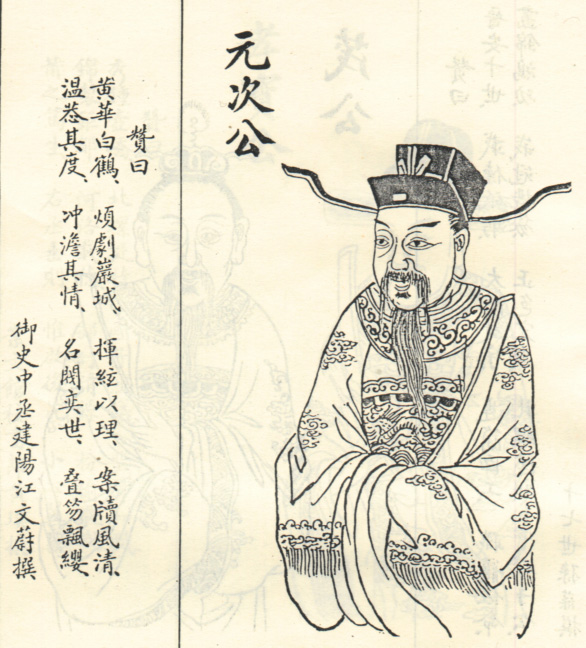 元次公
贊曰
黄華白鶴、煩劇巖城、揮絃以理、案牘風清、
温恭其度、冲澹其情、名閥奕世、叠笏飄纓、
御史中丞建陽江文蔚撰